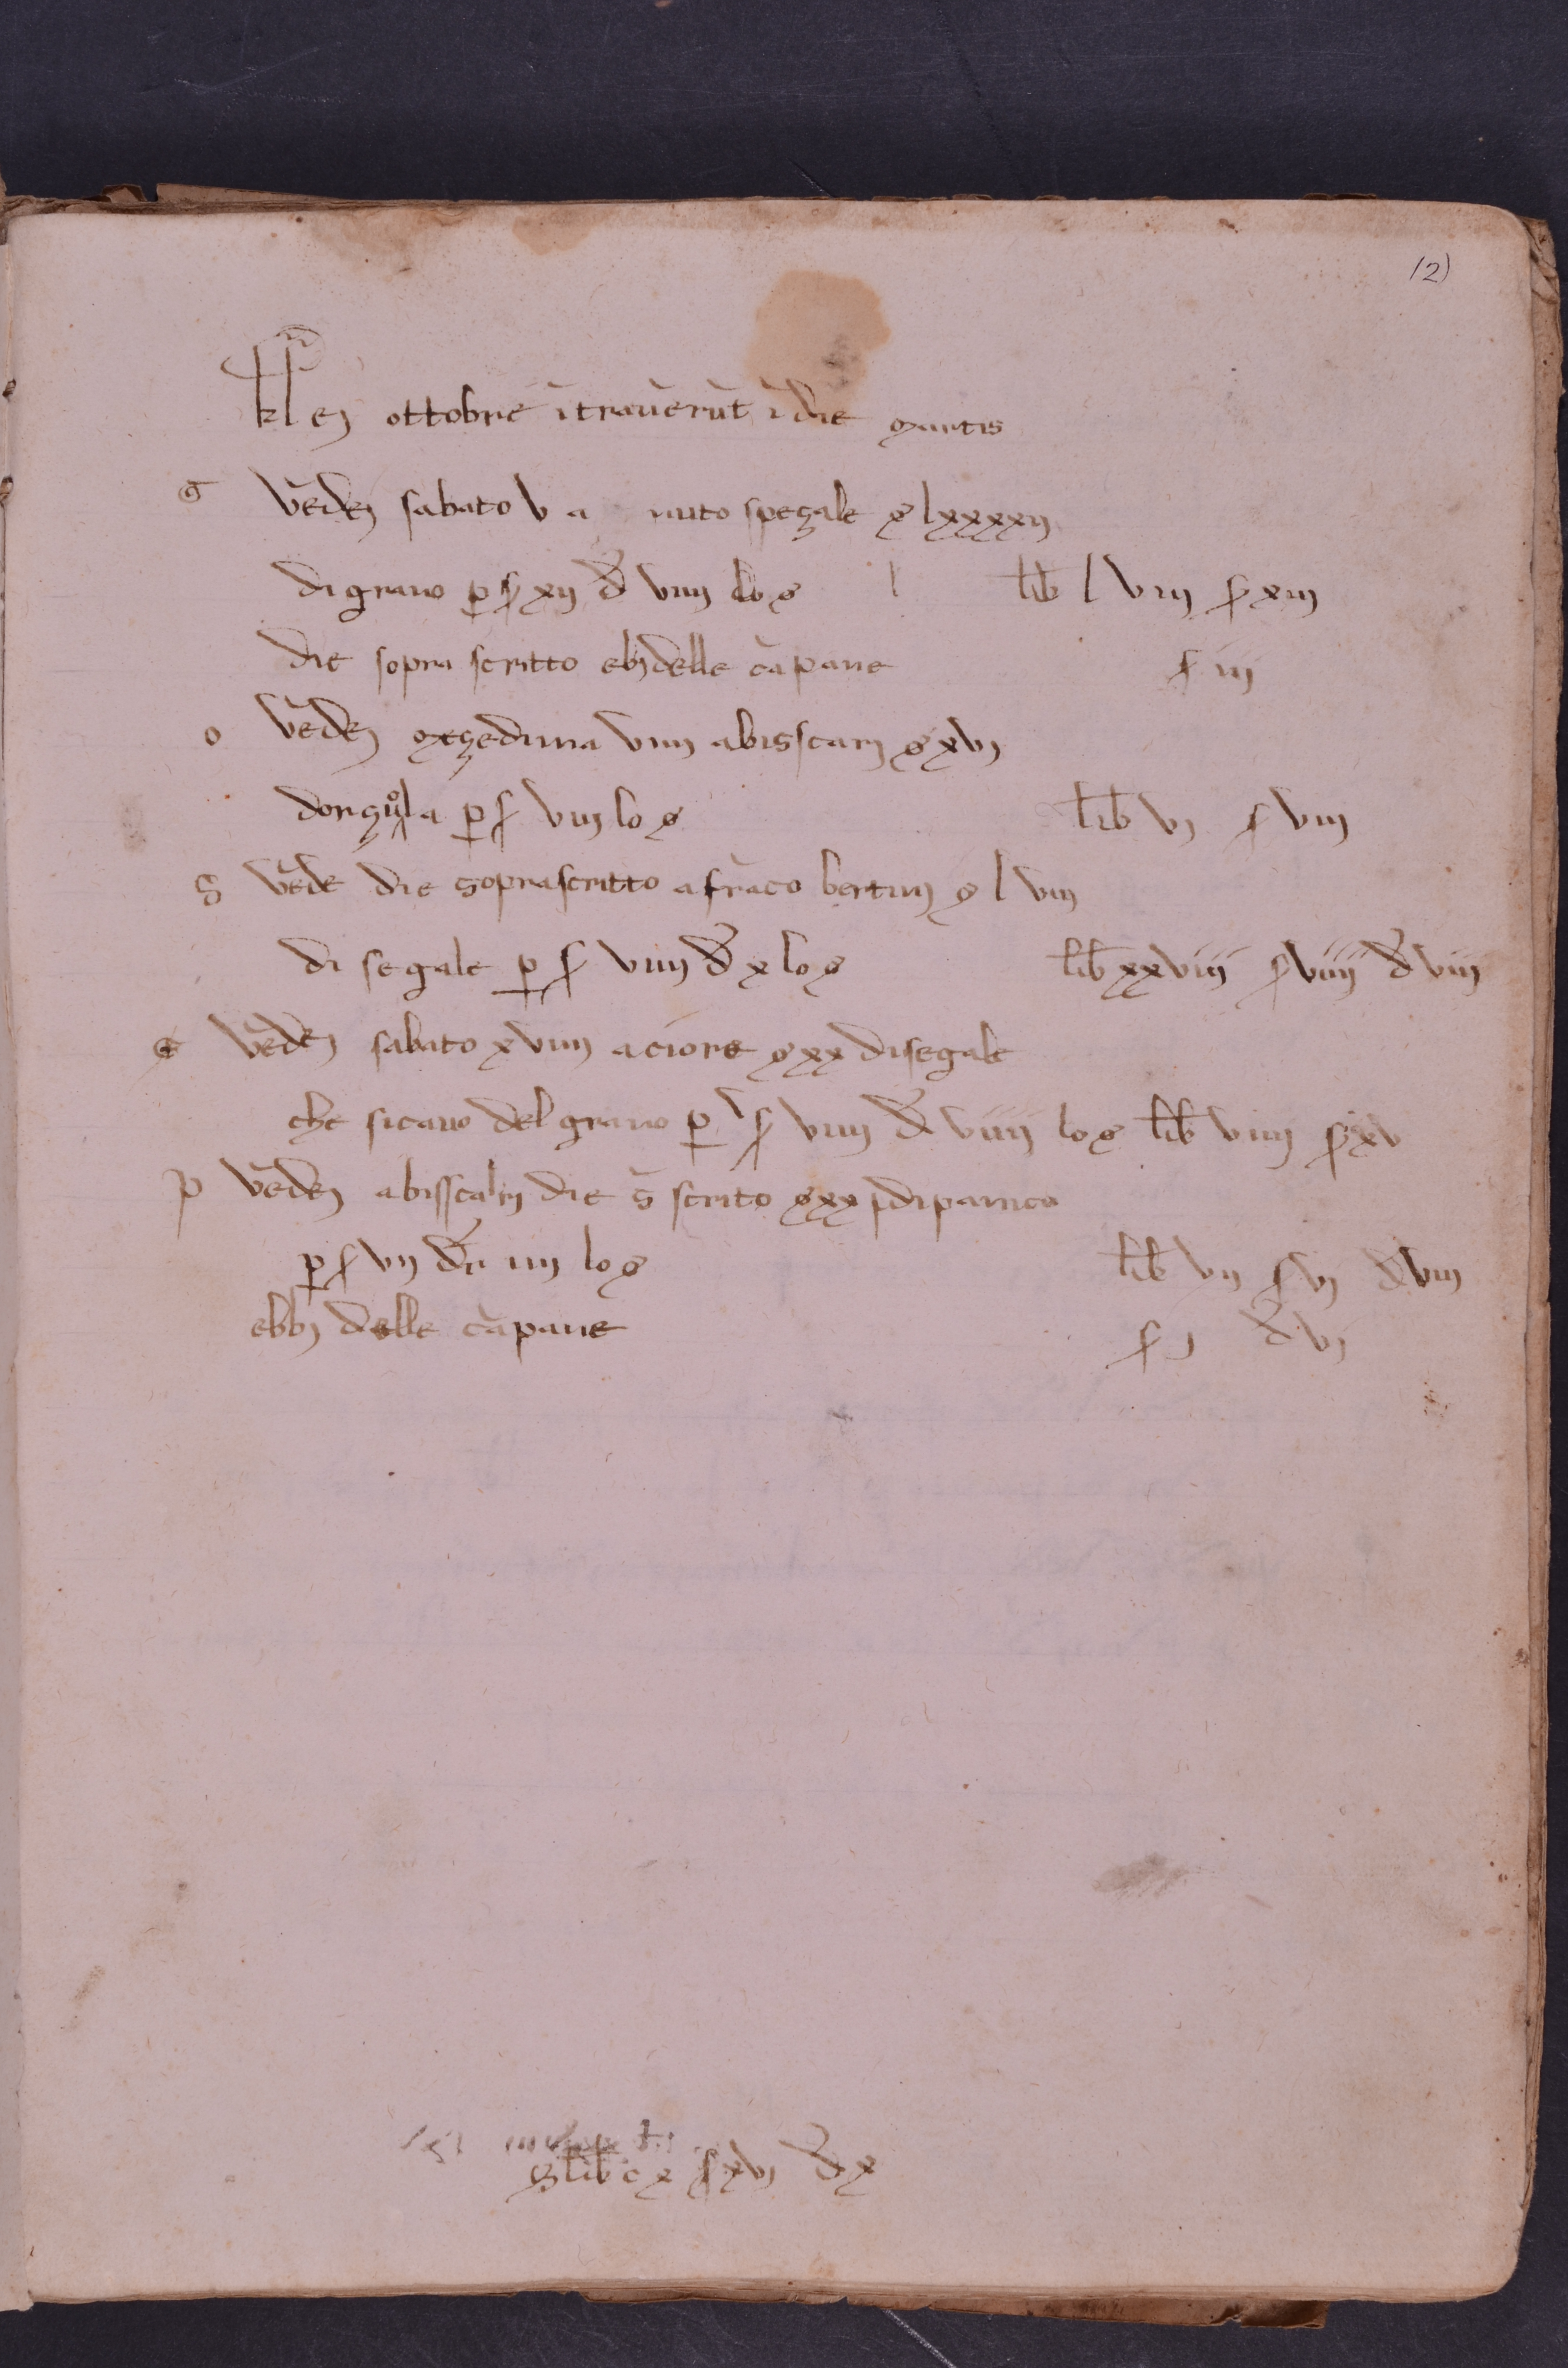 (2)
kl en ottobre ītraūerūt ī die martis
G vēdej sabato v a nuto speçale s lxxxxij
di grano p s xij d viiij lo s lib l viij s xiij
die sopra scritto ebj delle cāpane s iij
o vēdej meçedima viiij abisscarj s xvj
dorçuola p s viij lo s lib vj s viij
S vēde die soprascritto a frāco bertinj s l viij
di segale p s viiij d x lo s lib xxviij s viiij d viij
vēdej sabato xviiij a ciore s xx di segale
che si cavo del grano p s viiij d viiij lo s lib viiij s xv
p vēdej abisscarj die s scrito s xx di panico
p s vij d iiij lo s lib vij s vj d viij
ebbj delle cāpane s j d vj
S lib c x s xvj d x